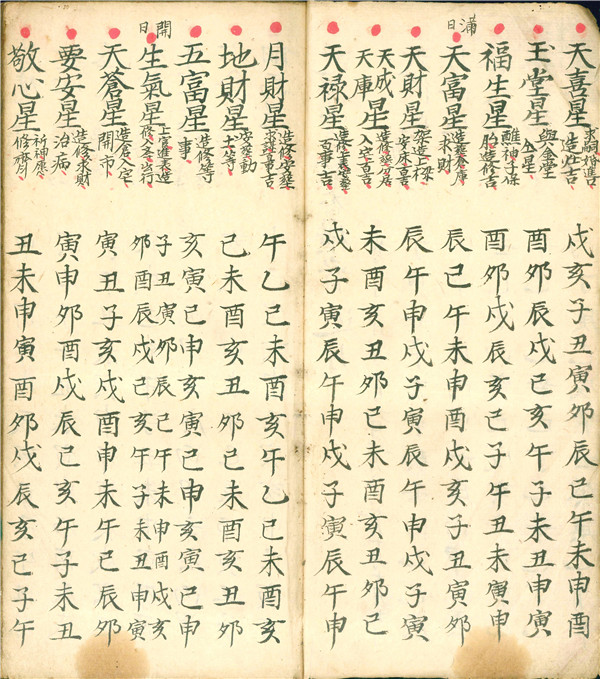 天喜星 求嗣婚進吉 造灶吉 戌亥子丑寅卯辰巳午未申酉
玉堂星 與金堂仝星 酉卯辰戌巳亥午子未丑申寅
福生星 醮神子保胎造修吉 酉卯戌辰亥巳子午丑未寅申
滿日
天富星 造葬倉庫求財 辰巳午未申酉戌亥子丑寅卯
天財星 架造上樑安床喜 辰午申戌子寅辰午申戌子寅
天成天庫星 造葬分居入宅喜 未酉亥丑卯巳未酉亥丑卯巳
天禄星 百事吉 戌子寅辰午申戌子寅辰午申
月財星 造修安葬 午乙巳未酉亥午乙巳未酉亥
地財星 安葬動土等 巳未酉亥丑卯巳未酉亥丑卯
五富星 造修等事 亥寅巳申亥寅巳申亥寅巳申
開日
生氣星 上官進表造修入宅出行
子丑寅卯辰巳午未申酉戌亥
卯酉辰戌巳亥午子未丑申寅
天蒼星 造倉入宅開市 寅丑子亥戌酉申未午巳辰卯
要安星 造修求財治病 寅申卯酉戌辰巳亥午子未丑
敬心星 祈神 修齋 丑未申寅酉卯戌辰亥巳子午